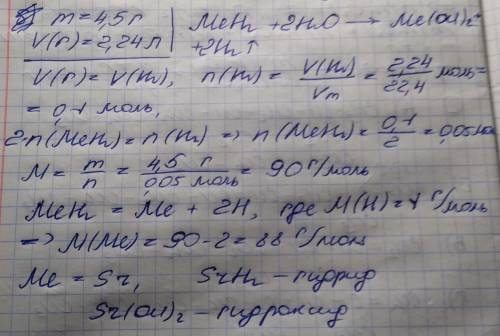 m = 4,5 г | MeH₂ + 2H₂O → Me(OH)₂
V(г) = 2,24 л | + 2H₂↑
V(г) = V(H₂), n(H₂) = V(H₂)/Vm = 2,24/22,4 моль =
= 0,1 моль,
2·n(MeH₂) = n(H₂) => n(MeH₂) = 0,1/2 = 0,05 моль
M = m/n = 4,5 г/0,05 моль = 90 г/моль
MeH₂ = Me + 2H, где M(H) = 1 г/моль
=> M(Me) = 90 - 2 = 88 г/моль
Me = Sr, SrH₂ - гидрид
Sr(OH)₂ - гидроксид